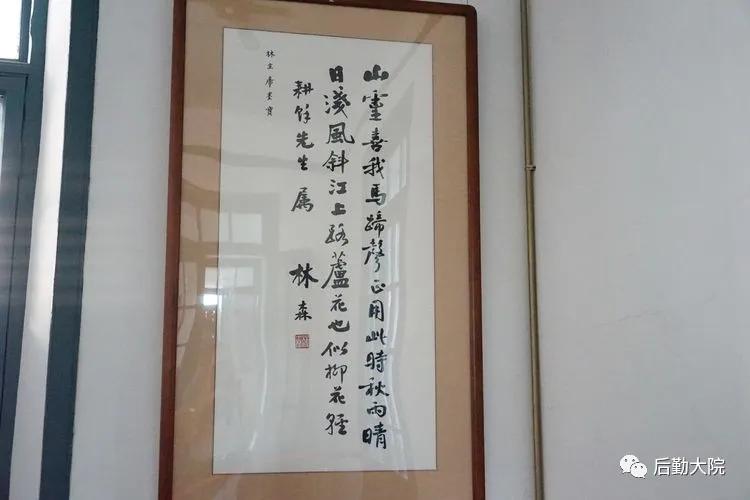 山靈喜我馬蹄聲正用此時秋雨晴
日淺風斜江上路蘆花也似柳花輕
耕餘先生屬
林森
林主席墨寶
后勤大院